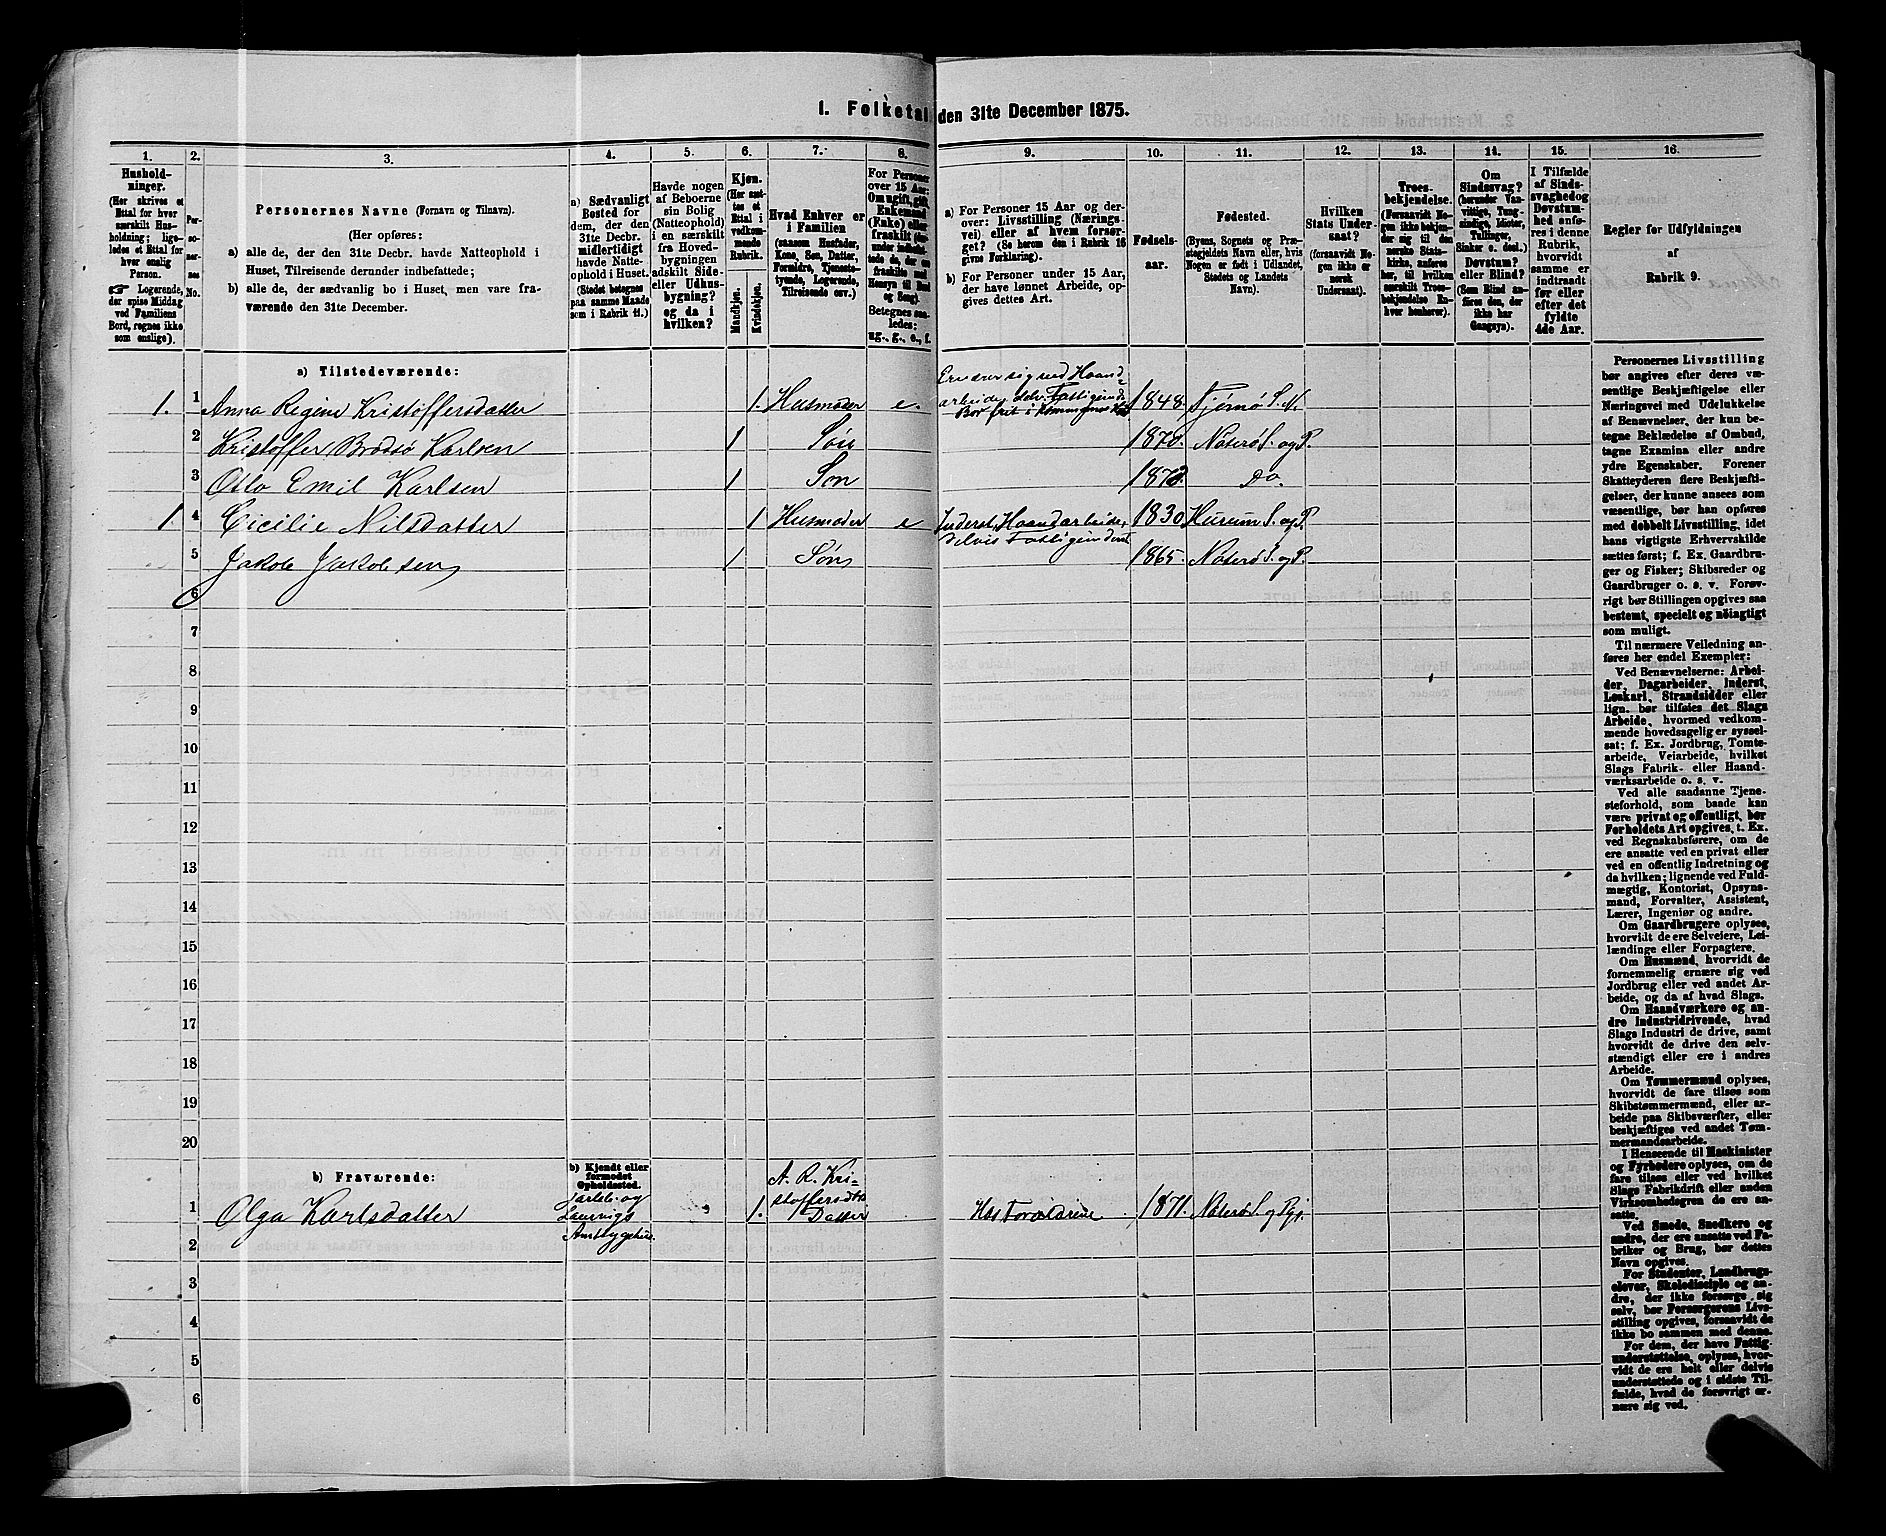 1. Folketal den 31te December 1875.
1. 2. 3. 4. 5. 6. 7. 8. 9. 10. 11. 12. 13. 14. 15. 16.
Hushold-
ninger.
(Her skrives et
Ettal for hver
særskilt Hus-
holdning; lige-
ledes et Ettal for
hver enslig
Person.
☞ Logerende,
der spise Middag
ved Familiens
Bord, regnes ikke
som enslige).
Per-
so-
ner-
nes
No.
Personernes Navne (Fornavn og Tilnavn).
(Her opføres:
a) alle de, der den 31te Decbr. havde Natteophold i
Huset, Tilreisende derunder indbefattede;
b) alle de, der sædvanlig bo i Huset, men vare fra-
værende den 31te December.
a) Sædvanligt
Bosted for
dem, der den
31te Decbr.
midlertidigt
havde Natte-
ophold i Huset.
(Stedet betegnes
paa samme Maade
som i Rubrik 11.)
Havde nogen
af Beboerne
sin Bolig
(Natteophold)
i en særskilt
fra Hoved-
bygningen
adskilt Side-
eller Udhus-
bygning?
og da i
hvilken?
Kjøn.
(Her sæt-
tes et
Ettal i
vedkom-
mende
Rubrik.
Mandkjøn.
Kvindekjøn.
Hvad Enhver er
i Familien
(saasom Husfader,
Kone, Søn, Datter,
Forældre, Tjeneste-
tyende, Logerende,
Tilreisende osv.)
For Personer
over 15 Aar:
Om ugift, gift,
Enkemand
(Enke) eller
fraskilt
Betegnes saa-
ledes:
ug., g., e., f.
a) For Personer 15 Aar og der-
over: Livsstilling (Nærings-
vei) eller af hvem forsør-
get? (Se herom den i Rubrik 16
givne Forklaring).
b) For Personer under 15 Aar,
der have lønnet Arbeide, op-
gives dettes Art.
Fødsels-
aar.
Fødested.
(Byens, Sognets og Præ-
stegjeldets Navn eller, hvis
Nogen er født i Udlandet,
Stedets og Landets
Navn).
Hvilken
Stats Under-
saat?
(forsaavidt No-
gen ikke er
norsk
Undersaat).
Troes-
bekjendelse.
(Forsaavidt No-
gen ikke bekjen-
der sig til den
norske Stats-
kirke, anføres
her, til hvilken
særskilt Troes-
bekjendelse En-
hver henhører).
Om
Sindssvag?
(herunder Van-
vittige, Tung-
sindige, Idioter,
Tullinger,
Sinker o. desl.)
Døvstum?
eller Blind?
(Som Blind an-
føres den, der
ikke har
Gangsyn).
I Tilfælde
af Sinds-
svaghed og
Døvstum-
hed anfø-
res i denne
Rubrik,
hvorvidt
samme er
indtraadt
før eller
efter det
fyldte
4de Aar.
Regler for Udfyldningen
af
Rubrik 9.
a) Tilstedeværende:
1. 1 Anna Regine Kristoffersdatter 1. Husmoder e. Ernærer sig ved Haand-
arbeide, delv. Fattigund. 1848. Tjømø S. N.
Bor frit i
2 Kristoffer Brodsø Karlsen 1 Søn 1870. Nøterø S. og P.
3 Otto Emil Karlsen 1 Søn 1873. Do.
1 4 Cicilie Nilsdatter 1 Husmoder e Inderst, Haandarbeide, 1830 Hurum S. og P.
delvis Fattigunderst
5 Jakob Jakobsen 1 Søn 1865. Nøterø S. og P.
6
7
8
9
10
11
12
13
14
15
16
17
18
19
20
b) Fraværende:
b) Kjendt eller
formodet
Opholdssted.
A. R. Kri-
1 Olga Karlsdatter Jarls- og
Laurvigs
Amtsygehus. 1. stoffersdts
Datter Hos Forældrene 1871. Nøterø S. og Pgj.
2
3
4
5
6
Personernes Livsstilling
bør angives efter deres væ-
sentlige Beskjæftigelse eller
Næringsvei med Udelukkelse
af Benævnelser, der kun be-
tegne Beklædelse af Ombud,
tagne Examina eller andre
ydre Egenskaber. Forener
Skatteyderen flere Beskjæfti-
gelser, der kunne ansees som
væsentlige, bør han opføres
med dobbelt Livsstilling, idet
hans vigtigste Erhvervskilde
sættes først; f. Ex. Gaardbru-
ger og Fisker; Skibsreder og
Gaardbruger o. s. v. Forøv-
rigt bør Stillingen opgives saa
bestemt, specielt og nøiagtigt
som muligt.
Til nærmere Veiledning an-
føres her endel Exempler:
Ved Benævnelserne: Arbei-
der, Dagarbeider, Inderst,
Løskarl, Strandsidder eller
lign. bør tilføies det Slags
Arbeide, hvormed vedkom-
mende hovedsagelig er syssel-
sat; f. Ex. Jordbrug, Tomte-
arbeide, Veiarbeide, hvilket
Slags Fabrik- eller Haand-
værksarbeide o. s. v.
Ved alle saadanne Tjene-
steforhold, som baade kan
være privat og offentligt, bør
Forholdets Art opgives, t. Ex.
ved Regnskabsførere, om de
ere ansatte ved en privat eller
ved en offentlig Indretning og
da hvilken; lignende ved Fuld-
mægtig, Kontorist, Opsyns-
mand, Forvalter, Assistent,
Lærer, Ingeniør og andre.
Om Gaardbrugere oplyses,
hvorvidt de ere Selveiere, Lei-
lændinge eller Forpagtere.
Om Husmænd, hvorvidt de
fornemmelig ernære sig ved
Jordbrug eller ved andet Ar-
beide, og da af hvad Slags.
Om Haandværkere og an-
dre Industridrivende, hvad
Slags Industri de drive, samt
hvorvidt de drive den selv-
stændigt eller ere i andres
Arbeide.
Om Tømmermænd oplyses,
hvorvidt de fare tilsøs som
Skibstømmermænd, eller ar-
beide paa Skibsværfter, eller
beskjæftiges ved andet Tøm-
mermandsarbeide.
I Henseende til Maskinister
og Fyrbødere oplyses, om de
fare tilsøs eller ved hvilket
Slags Fabrikdrift eller anden
Virksomhedsgren de ere an-
satte.
Ved Smede, Snedkere og
andre, der ere ansatte ved Fa-
briker og Brug, bør dettes
Navn opgives.
For Studenter, Landbrugs-
elever, Skoledisciple og an-
dre, der ikke forsørge sig
selv, bør Forsørgerens Livs-
stilling opgives, forsaavidt de
ikke bo sammen med denne.
For dem, der have Fattig-
understøttelse, oplyses, hvor-
vidt de ere helt eller delvis
understøttede og i sidste Til-
fælde, hvad de forøvrigt er-
nære sig ved.